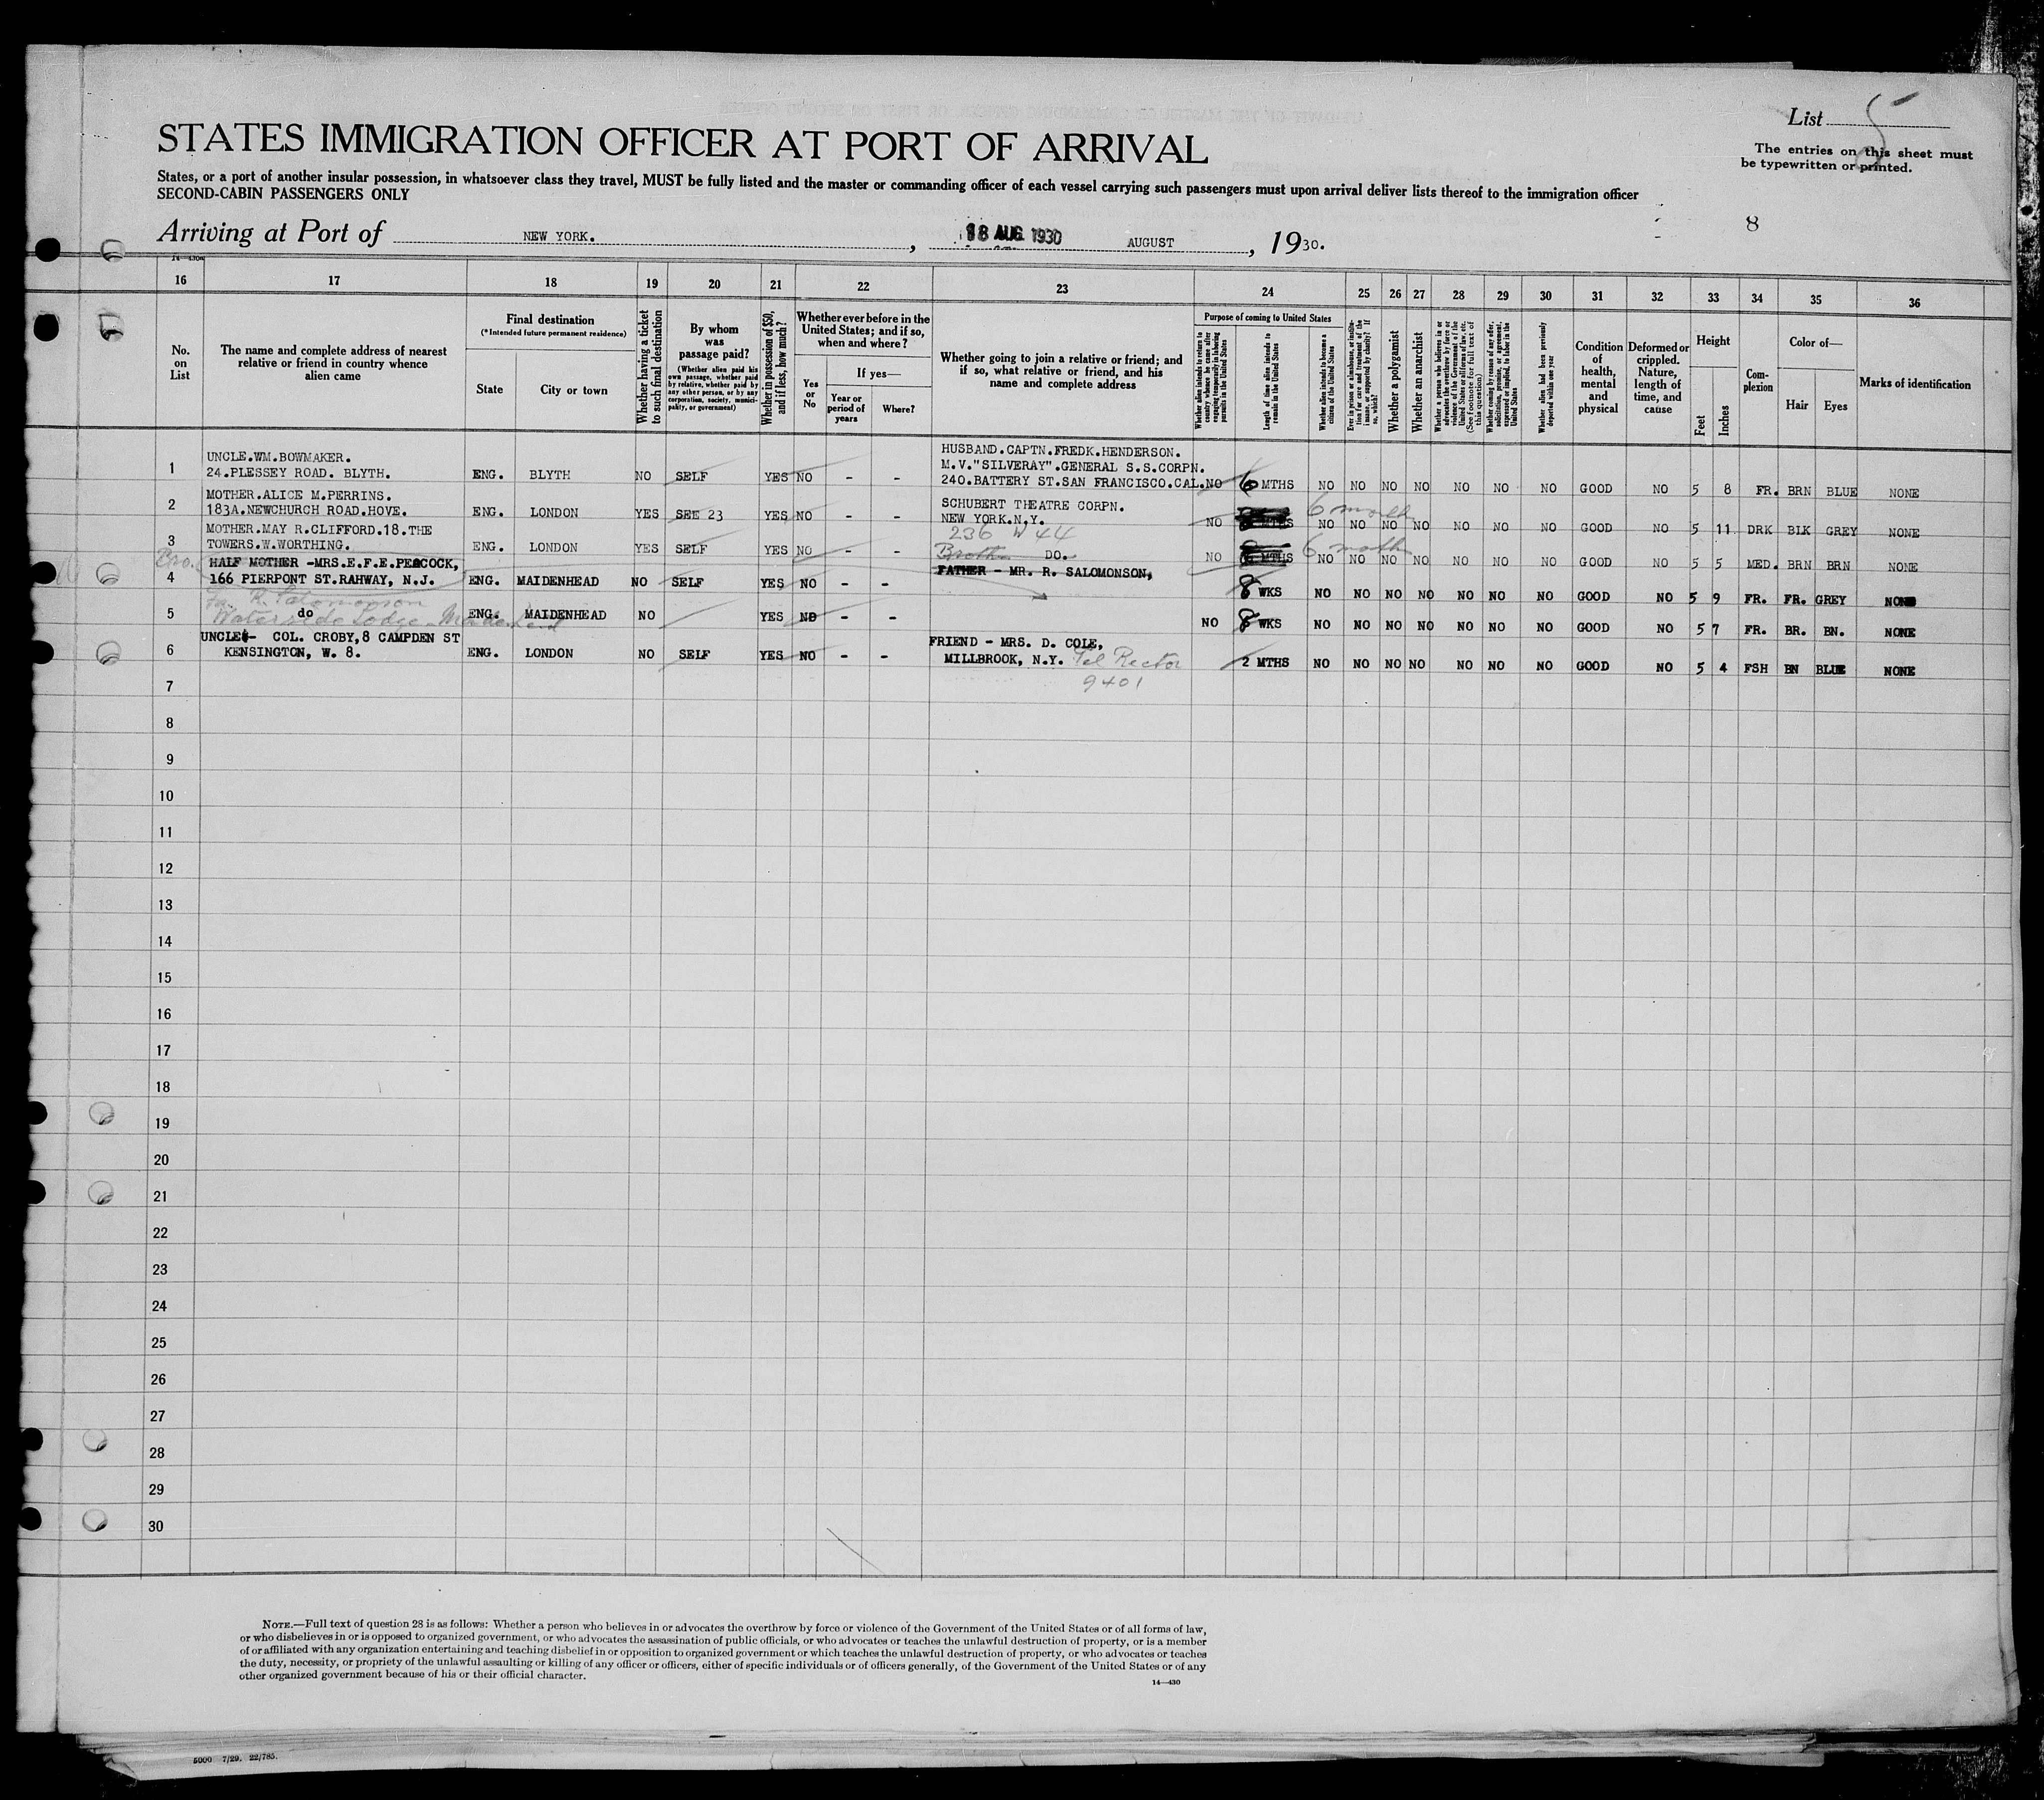 List 5
The entries on this sheet must
be typewritten or printed.
STATES IMMIGRATION OFFICER AT PORT OF ARRIVAL
States, or a port of another insular possession, in whatsoever class they travel, MUST be fully listed and the master or commanding officer of each vessel carrying such passengers must upon arrival deliver lists thereof to the immigration officer
SECOND-CABIN PASSENGERS ONLY
8
Arriving at Port of NEW YORK. , 18 AUG 1930 AUGUST , 1930.
14—430a
16 17 18 19 20 21 22 23 24 25 26 27 28 29 30 31 32 33 34 35 36
No.
on
List
The name and complete address of nearest
relative or friend in country whence
alien came
Final destination
(*Intended future permanent residence)
State
City or town
Whether having a ticket
to such final destination
By whom
was
passage paid?
(Whether alien paid his
own passage, whether paid
by relative, whether paid by
any other person, or by any
corporation, society, munici-
pality, or government)
Whether in possession of $50,
and if less, how much?
Whether ever before in the
United States; and if so,
when and where?
Yes
or
No
If yes—
Year or
period of
years
Where?
Whether going to join a relative or friend; and
if so, what relative or friend, and his
name and complete address
Purpose of coming to United States
Whether alien intends to return to
country whence he came after
engaging temporarily in laboring
pursuits in the United States
Length of time alien intends to
remain in the United States
Whether alien intends to become a
citizen of the United States
Ever in prison or almshouse, or institu-
tion for care and treatment of the
insane, or supported by charity? If
so, which?
Whether a polygamist
Whether an anarchist
Whether a person who believes in or
advocates the overthrow by force or
violence of the Government of the
United States or all forms of law, etc.
(See footnote for full text of
this question)
Whether coming by reason of any offer,
solicitation, promise, or agreement,
expressed or implied, to labor in the
United States
Whether alien had been previously
deported within one year
Condition
of
health,
mental
and
physical
Deformed or
crippled.
Nature,
length of
time, and
cause
Height
Feet
Inches
Com-
plexion
Color of—
Hair
Eyes
Marks of identification
UNCLE.WM.BOWMAKER. HUSBAND.CAPTN.FREDK.HENDERSON.
1 24.PLESSEY ROAD. BLYTH. ENG. BLYTH NO SELF YES NO - - M.V."SILVERAY".GENERAL S.S.CORPN.
240.BATTERY ST.SAN FRANCISCO.CAL. NO 6 MTHS NO NO NO NO NO NO NO GOOD NO 5 8 FR. BRN BLUE NONE
MOTHER.ALICE M.PERRINS. SCHUBERT THEATRE CORPN.
2 183A.NEWCHURCH ROAD.HOVE. ENG. LONDON YES SEE 23 YES NO - - NEW YORK.N.Y. NO MTHS 6 months NO NO NO NO NO NO NO GOOD NO 5 11 DRK BLK GREY NONE
236 W 44
MOTHER.MAY R.CLIFFORD.18.THE
3 TOWERS.W.WORTHING. ENG. LONDON YES SELF YES NO - - DO. NO MTHS 6 months NO NO NO NO NO NO NO GOOD NO 5 5 MED. BRN BRN NONE
HALF MOTHER -MRS.E.F.E.PEACOCK, FATHER - MR. R. SALOMONSON,
4 166 PIERPONT ST.RAHWAY, N.J. ENG. MAIDENHEAD NO SELF YES NO - - 8 WKS NO NO NO NO NO NO NO GOOD NO 5 9 FR. FR. GREY NONE
Fa. R. Salomonson
5 do ENG. MAIDENHEAD NO YES NO - - NO 8 WKS NO NO NO NO NO NO NO GOOD NO 5 7 FR. BR. BN. NONE
Waterside Lodge - Maidenhead
UNCLE - COL. CROBY,8 CAMPDEN ST FRIEND - MRS. D. COLE,
6 KENSINGTON, W. 8. ENG. LONDON NO SELF YES NO - - MILLBROOK, N.Y. Tel Rector 2 MTHS NO NO NO NO NO NO NO GOOD NO 5 4 FSH BN BLUE NONE
9401
7
8
9
10
11
12
13
14
15
16
17
18
19
20
21
22
23
24
25
26
27
28
29
30
NOTE.—Full text of question 28 is as follows: Whether a person who believes in or advocates the overthrow by force or violence of the Government of the United States or of all forms of law,
or who disbelieves in or is opposed to organized government, or who advocates the assassination of public officials, or who advocates or teaches the unlawful destruction of property, or is a member
of or affiliated with any organization entertaining and teaching disbelief in or opposition to organized government or which teaches the unlawful destruction of property, or who advocates or teaches
the duty, necessity, or propriety of the unlawful assaulting or killing of any officer or officers, either of specific individuals or of officers generally, of the Government of the United States or of any
other organized government because of his or their official character.
14—430
5000 7/29. 22/785.